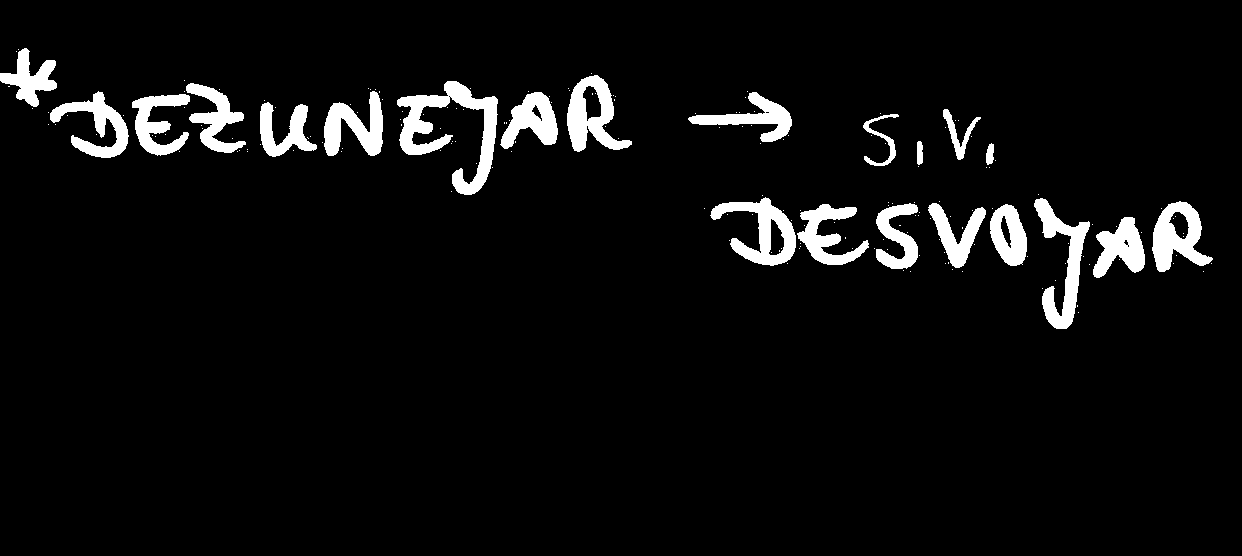 *DEZUNEJAR → s.v.
DESVOJAR